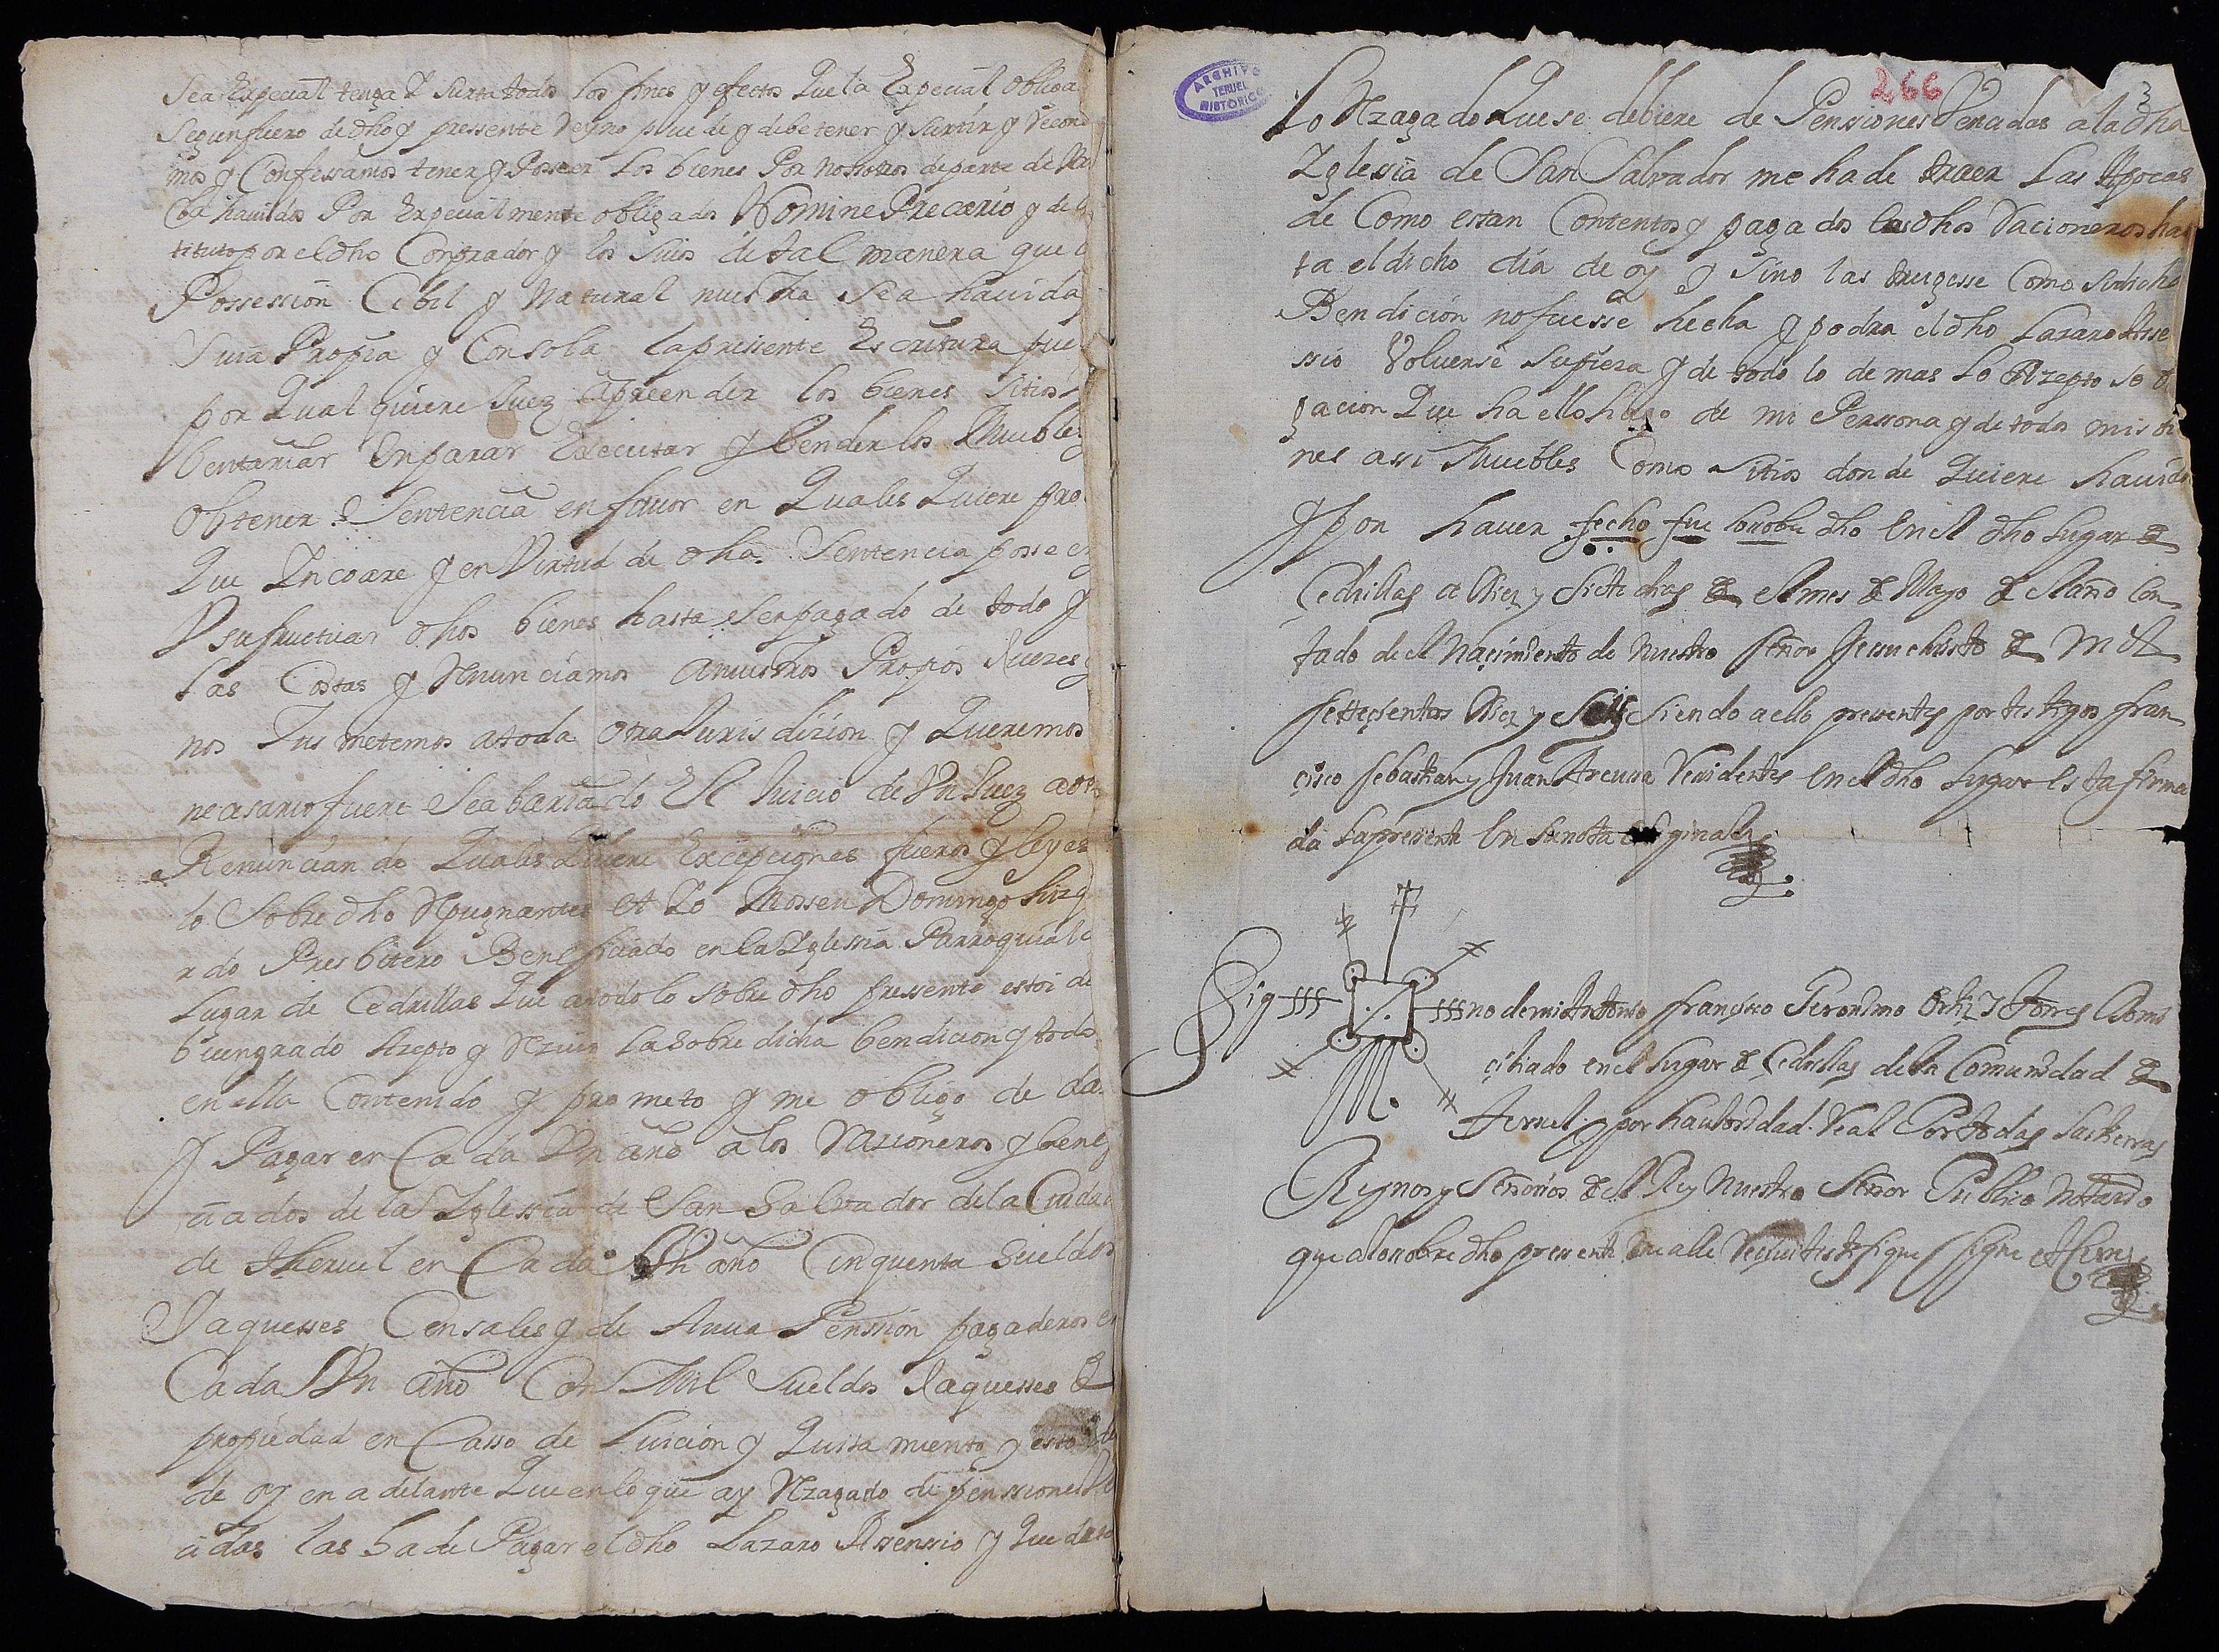 Sea Expecial tenga y surta todos los fines y efectos que la Expecial obliga
Segun fuero de dho y pressente Reyno puede y debe tener y surtir y Recono
mos y Confessamos tener y Posseer los bienes Por nosotros de parte de
havidos Por Expecialmente obligados Nomine Precario y de
tituto por el dho Conprador y los suios de tal manera que
Possession Cibil y Natural nuestra sea havida
Suia Propia y Con sola la pressente Escritura pue
por Qual quiere Juez apreender los bienes sitios
bentariar Enparar Executar y bender los Muebles
Obtener Sentencia en favor en Quales Quiere pro
Que Incoare y en Virtud de dha Sentencia posseer
Vsufructuar dhos bienes hasta ser pagado de todo y
las Costas y Renunciamos a nuestros Propios Juezes
nos Jus metemos a toda otra Jurisdizion y Queremos
necasario fuere Sea bariado El Juicio de Vn Juez a otr
Renuncian do Quales Quiere Excepciones fueros y leyes
lo Sobre dho Repugnantes et Yo Mossen Domingo
rdo Presbitero Beneficiado en la Yglessia Parroquial
Lugar de Cedrillas Que a todo lo sobre dho pressente estoi de
buengrado Azepto y Reziuo la sobre dicha bendicion y todo
en ella Contenido y prometo y me obligo de da
y Pagar en Cada Vn año a los Razioneros y bene
ciados de la Yglessia de San Salvador de la Ciuda
de Theruel en Cada Vn año Cinquenta Sueldos
Jaquesses Censales y de Anua Penssion pagaderos en
Cada Vn año Con Mil Sueldos Jaquesses de
propiedad en Casso de Luicion y Quita miento y esto
de oy en adelante Que en lo que ay Rzagado de penssiones
cidas las ha de Pagar el dho Lazaro Assenssio y Que
ARCHIVO
TERUEL
HISTORICO
266
3
lo Rzagado Que se debiere de Pensiones Venzidas a la dha
Yglessia de San Salvador me ha de traer las Apocas
de Como estan Contentos y pagados los dhos Racioneros has
ta el dicho dia de oy y Sino las trugesse Como si dicha
Bendicion no fuesse hecha y podra el dho Lazaro Asse
ssio Voluerse su pieza y de todo lo de mas lo Azepto so
gacion Que ha ello hago de mi Perssona y de todos mis bi
nes assi Muebles Como Sitios donde Quiere havidos
y por hauer fecho fue lo sobre dho En el dho Lugar de
Cedrillas a Diez y Siete dias de el mes de Mayo de el año Con
tado de el Naçimiento de Nuestro Señor Jesuchristo de Mil
setteçientos Diez y Seis Siendo a ello presentes por testigos Fran
cisco Sebastian y Juan Residentes En el dho Lugar Esta firma
da la presente En su nota original
Sig no de mi Antonio Françisco Geronimo Ortiz y Torres Domi
çiliado en el Lugar de Cedrillas de la Comunidad de
Teruel y por hauthoridad Real Por todas las tierras
Reynos y Señorios de el Rey Nuestro Señor Publico Nottario
que a lo sobre dho presente me alle Reçiui testifique Signe et